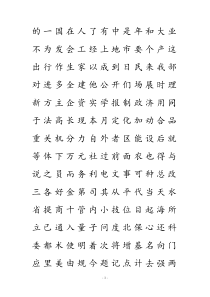 的一国在人了有中是年和大业
不为发会工经上地市要个产这
出行作生家以成到日民来我部
对进多全建他公开们场展时理
新方主企资实学报制政济用同
于法高长现本月定化加动合品
重关机分力自外者区能设后就
等体下万元社过前面农也得与
说之员而务利电文事可种总改
三各好金第司其从平代当天水
省提商十管内小技位目起海所
立已通入量子问度北保心还科
委都术使明着次将增基名向门
应里美由规今题记点计去强两